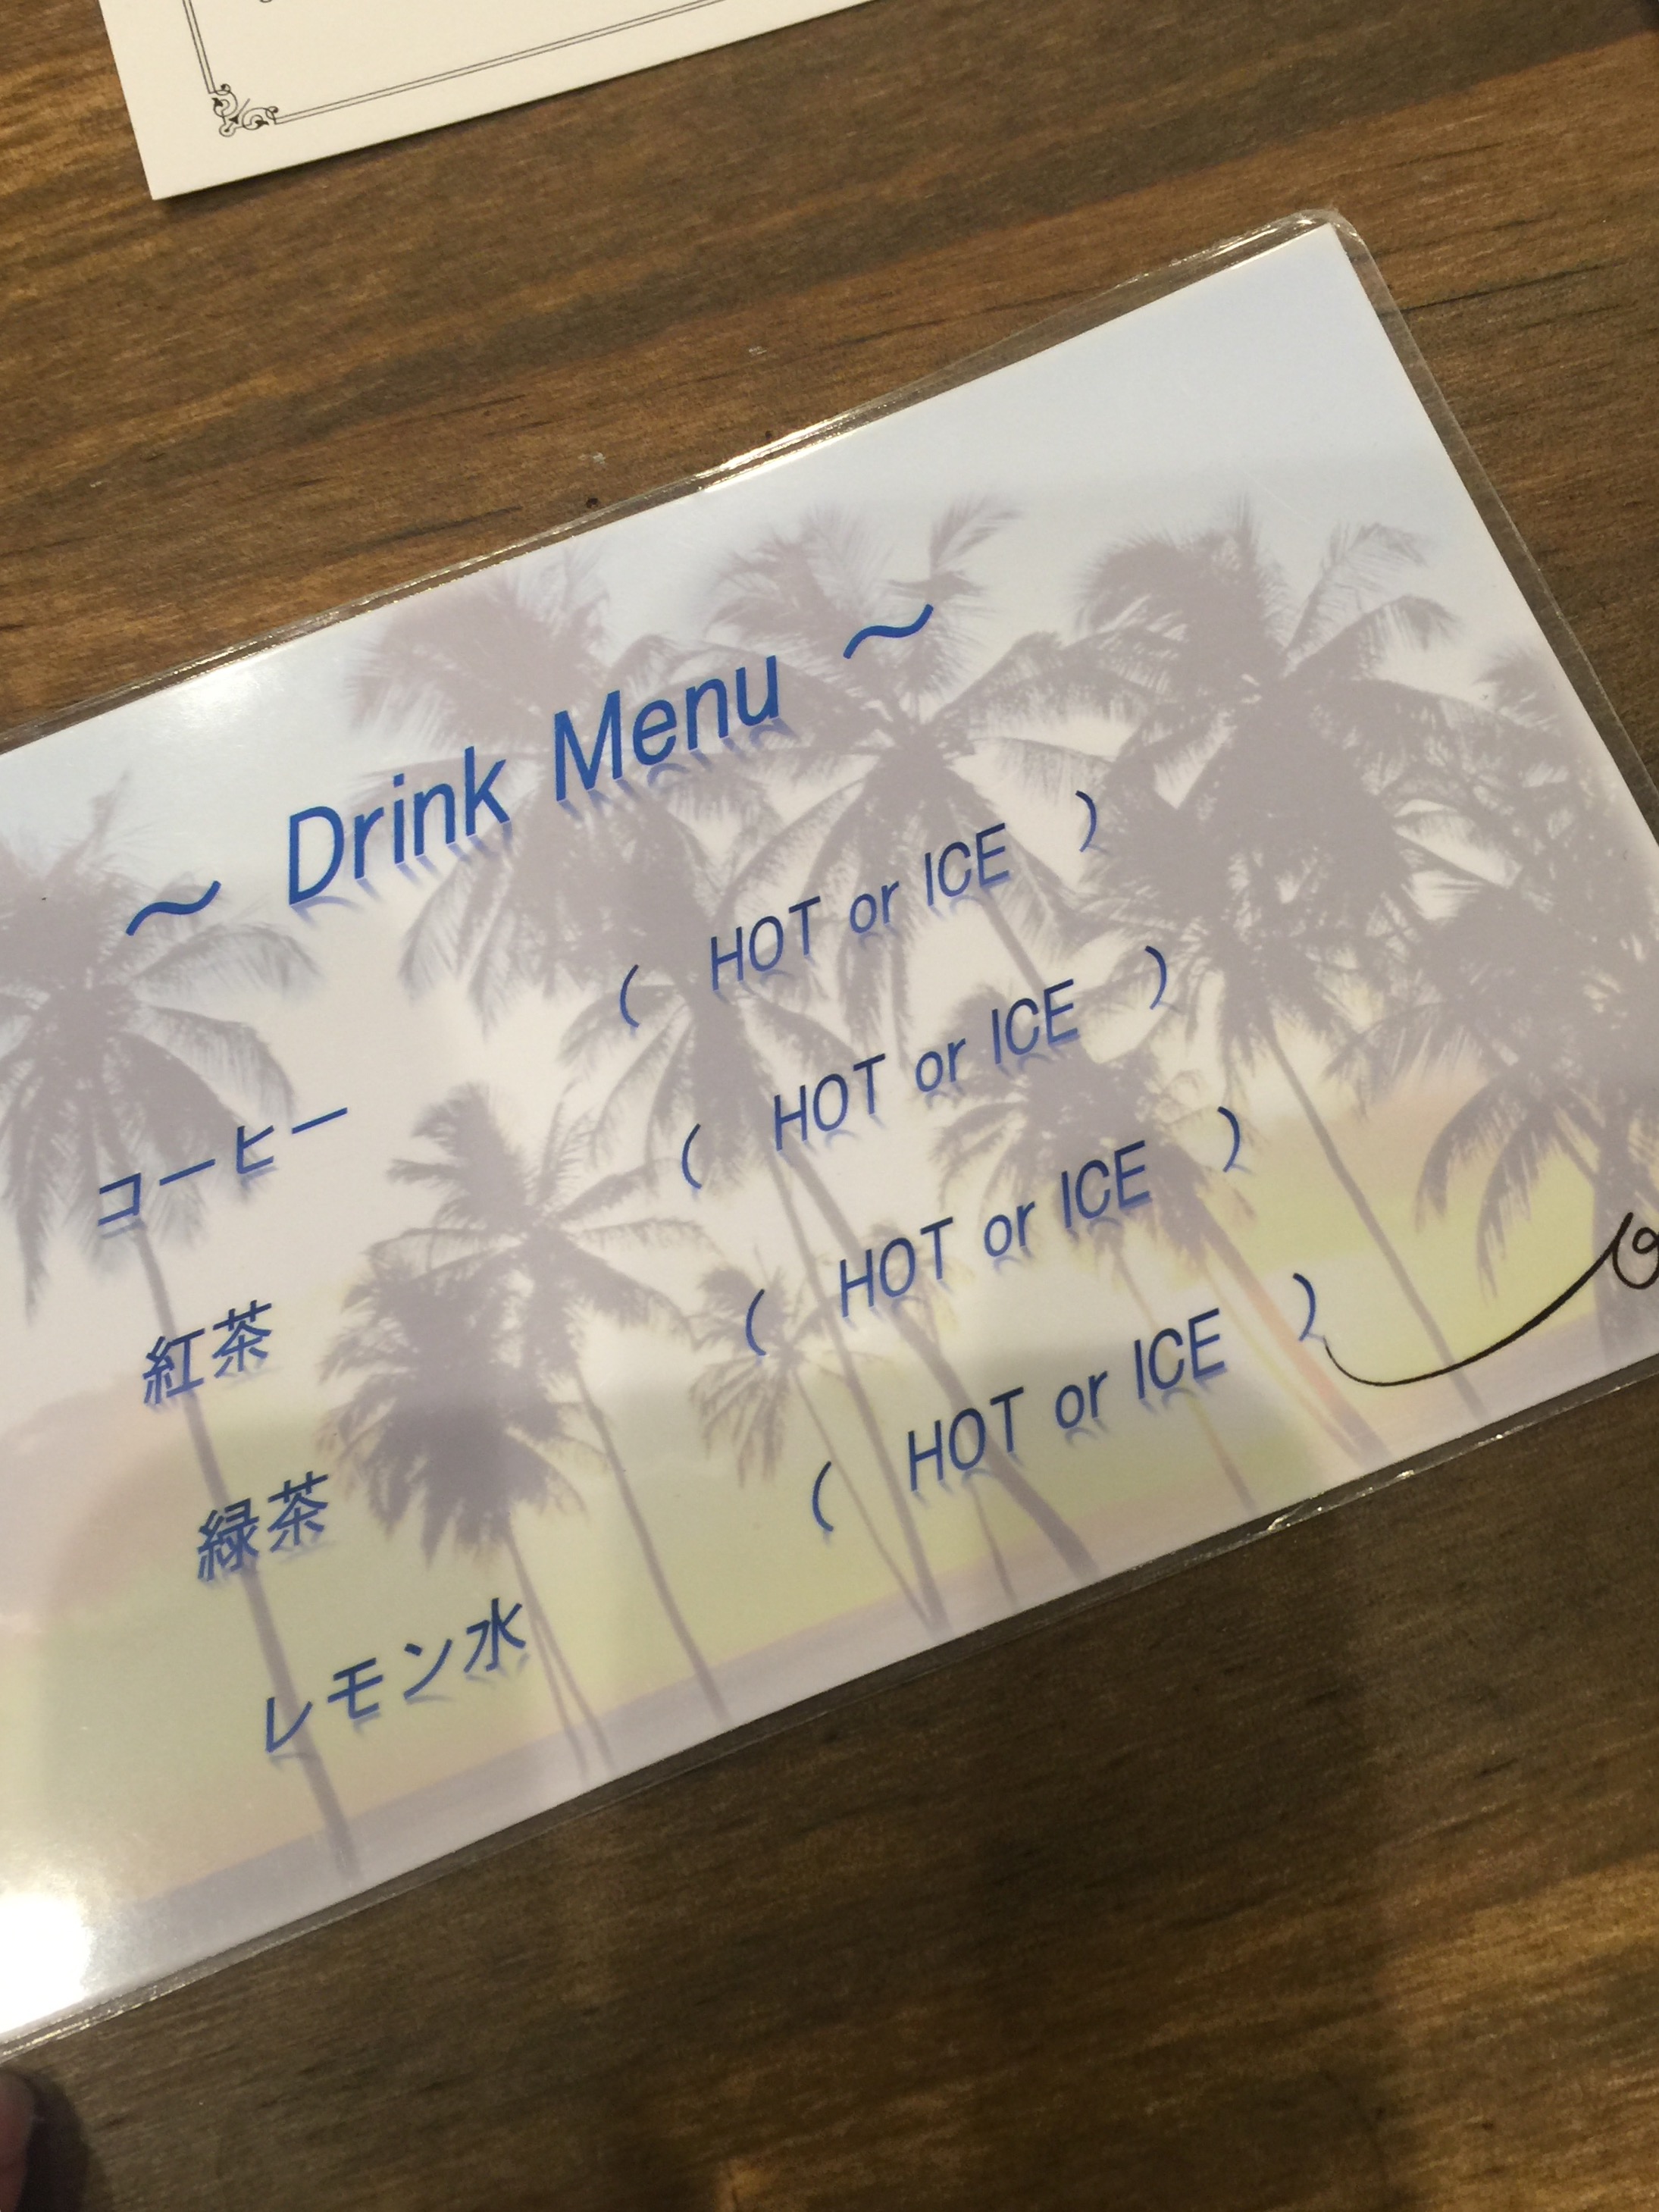 ～ Drink Menu ～
コーヒー （ HOT or ICE ）
紅茶 （ HOT or ICE ）
緑茶 （ HOT or ICE ）
レモン水 （ HOT or ICE ）